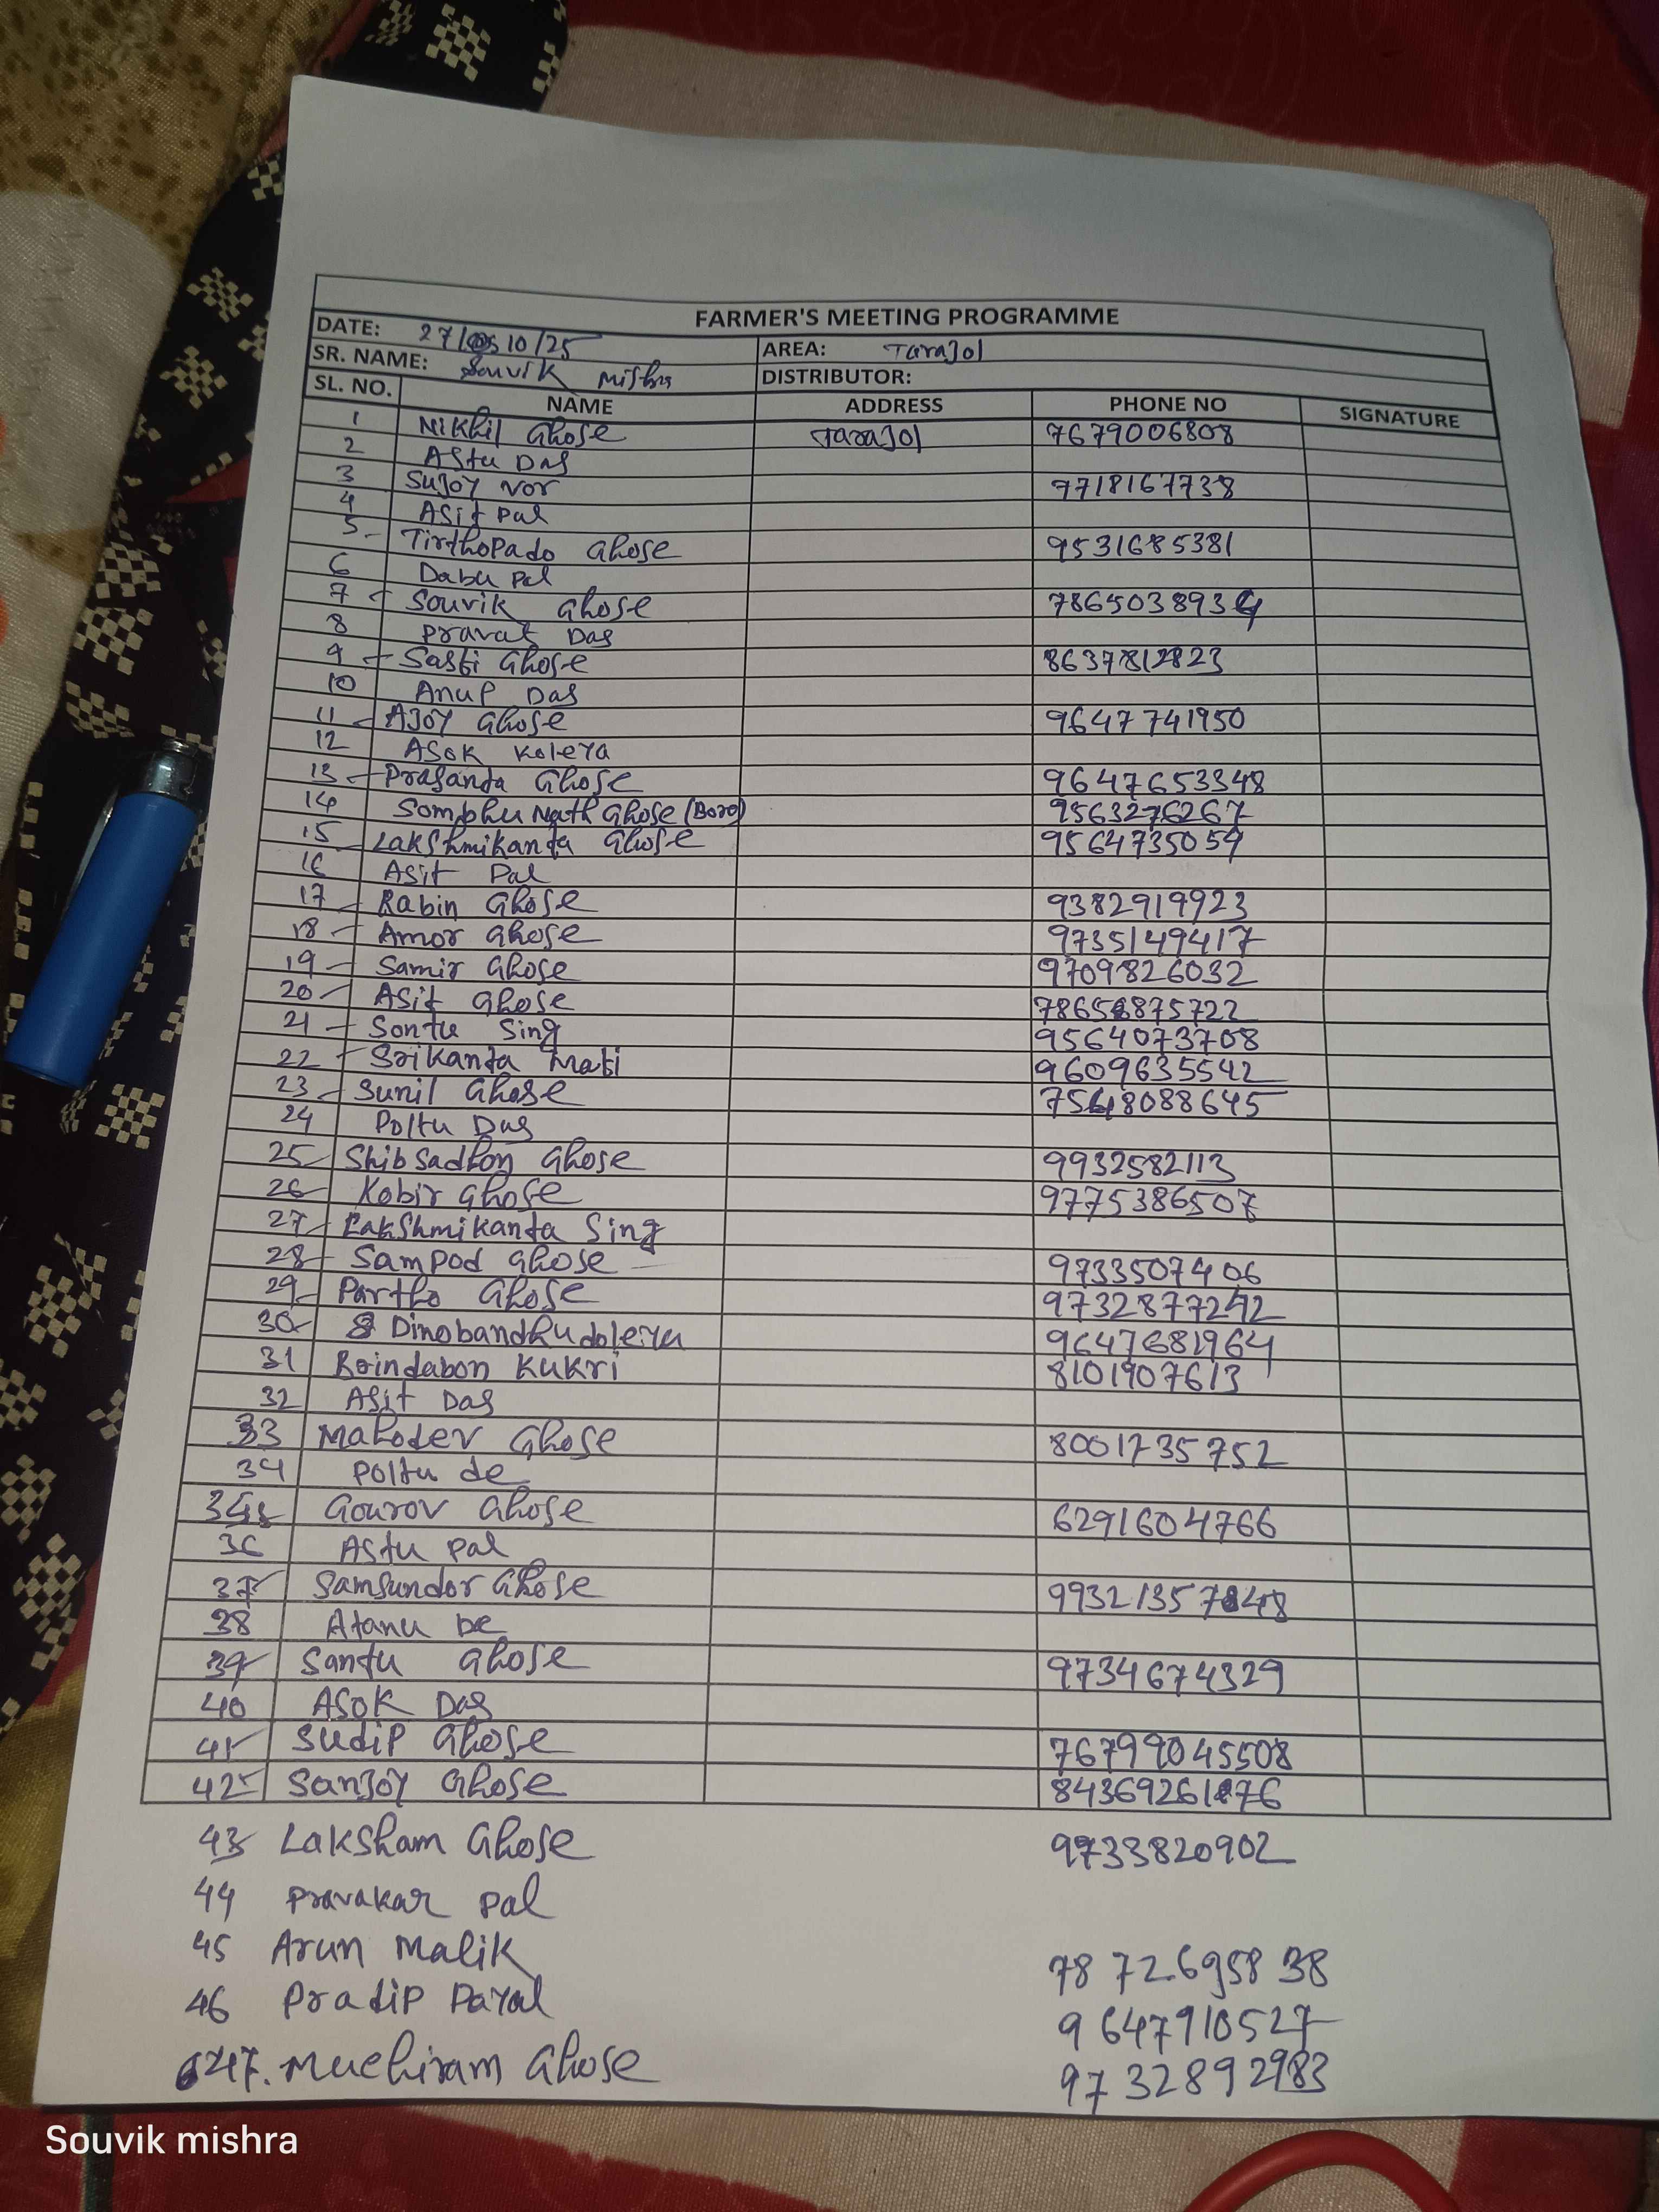 FARMER'S MEETING PROGRAMME
DATE: 27/10/25 AREA: Tarajol
SR. NAME: Souvik Mishra DISTRIBUTOR:
SL. NO. NAME ADDRESS PHONE NO SIGNATURE
1 Nikhil Ghose Tarajol 7679006808
2 Astu Das
3 Sujoy Nor 9718167738
4 Asit Pal
5 Tirthopado Ghose 9531685381
6 Dabu Pal
7 Souvik Ghose 7865038934
8 Pravat Das
9 Sasti Ghose 8637812823
10 Anup Das
11 Ajoy Ghose 9647741950
12 Asok Kolera
13 Prasanta Ghose 9647653348
14 Sombhu Nath Ghose (Boro) 9563276267
15 Lakshmikanta Ghose 9564735059
16 Asit Pal
17 Rabin Ghose 9382919923
18 Amor Ghose 9735149417
19 Samir Ghose 9709826032
20 Asit Ghose
21 Sontu Sing 9564073708
22 Srikanta Mati 9609635542
23 Sunil Ghose 7548088645
24 Poltu Das
25 Shibsadhon Ghose 9932582113
26 Kobir Ghose 9775386507
27 Lakshmikanta Sing
28 Sampod Ghose 9733507406
29 Partho Ghose 9732877242
30 Dinobandhu dolera 9647681964
31 Brindabon Kukri 8101907613
32 Asit Das
33 Mahodev Ghose 8001735752
34 Poltu de
35 Gourov Ghose 6291604766
36 Astu Pal
37 Samsundor Ghose
38 Atanu De
39 Santu Ghose 9734674329
40 Asok Das
41 Sudip Ghose 76799045508
42 Sanjoy Ghose
43 Laksham Ghose 9733820902
44 Pravakar Pal
45 Arun Malik 7872695838
46 Pradip Payal 9647910527
47. Muchiram Ghose 9732892983
Souvik mishra